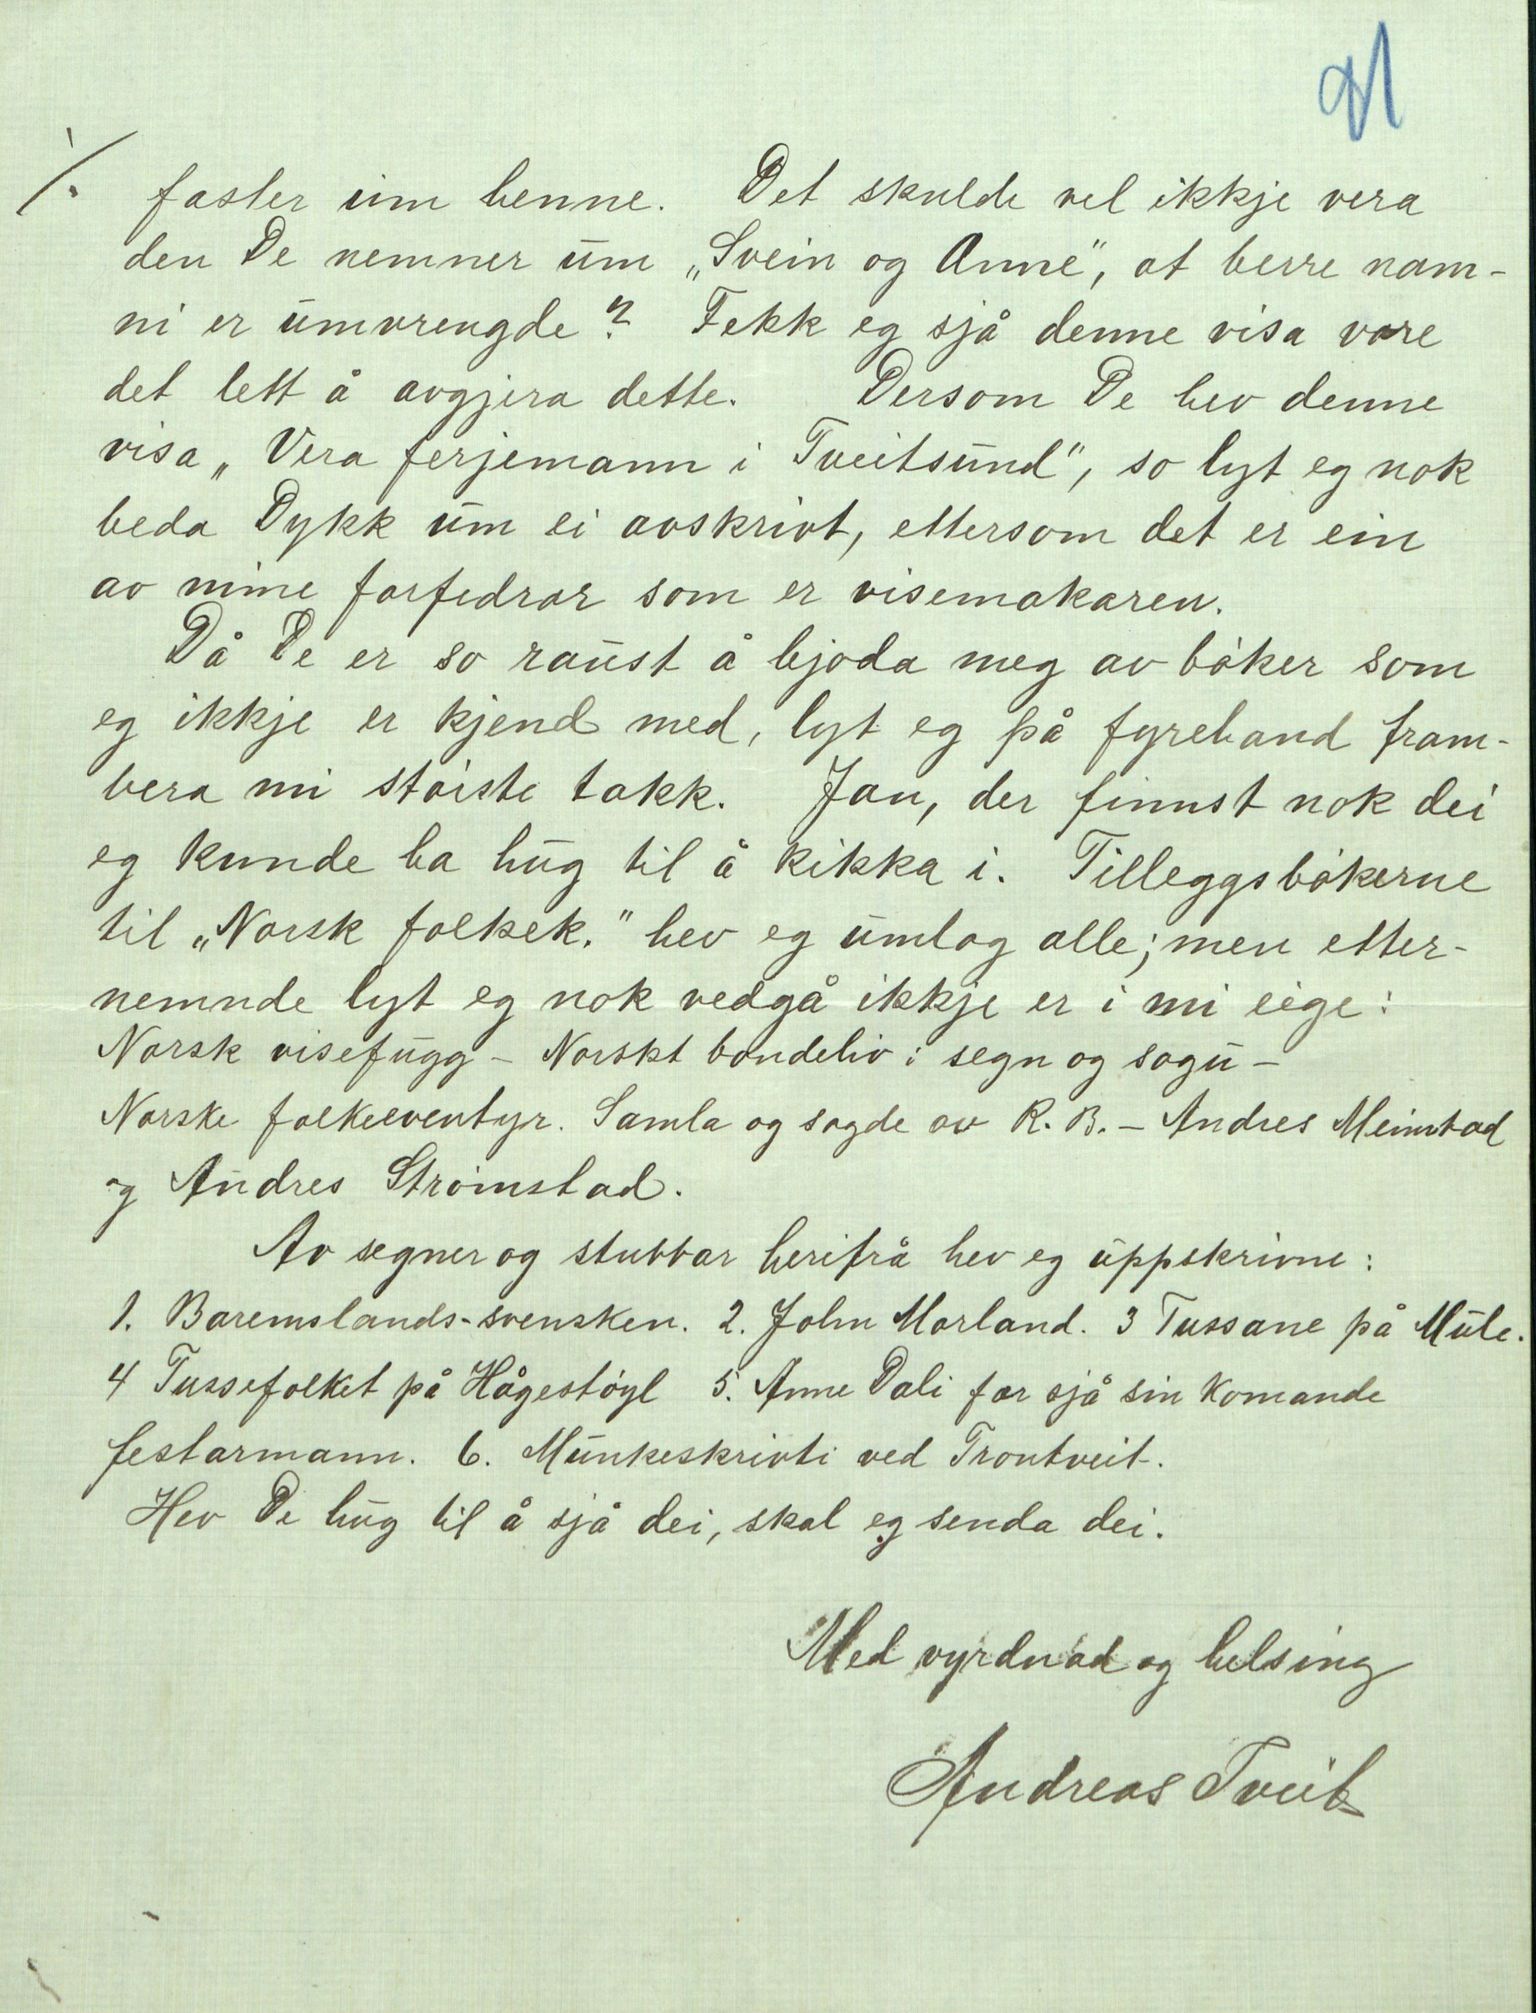 faster um henne. Det skulde vel ikkje vera
den De nemner um „Svein og Anne", at berre nam-
ni er umvrengde? Fekk eg sjå denne visa vare
det lett å avgjera dette. Dersom De hev denne
visa „Vera ferjemann i Tveitsund", so lyt eg nok
beda Dykk um ei avskrivt, ettersom det er ein
av mine forfedrar som er visemakaren.
Då De er so raust å bjoda meg av bøker som
eg ikkje er kjend med, lyt eg på fyrehand fram-
bera mi største takk. Jau, der finnst nok dei
eg kunde ha hug til å kikka i. Tilleggsbøkerne
til „Norsk folkek." hev eg umlag alle; men etter-
nemnde lyt eg nok vedgå ikkje er i mi eige:
Norsk visefugg – Norskt bondeliv i segn og sogu –
Norske folkeeventyr. Samla og sagde av R. B. – Andres Meinstad
og Andres Strømstad.
Av segner og stubbar herifrå hev eg uppskrivne:
1. Baremslands-svensken. 2. John Morland. 3 Tussane på Mule.
4 Tussefolket på Hågestøyl 5. Anne Dali fær sjå sin komande
festarmann. 6. Munkeskrivti ved Trontveit.
Hev De hug til å sjå dei, skal eg senda dei.
Med vyrdnad og helsing
Andreas Tveit